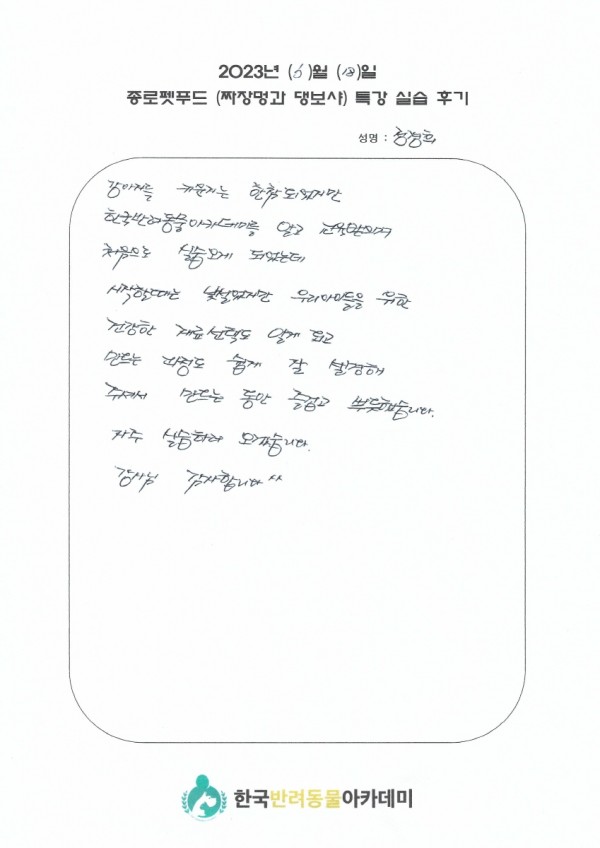 2023년 (6)월 (18)일
종로펫푸드 (짜장멍과 댕보샤) 특강 실습 후기
성명 : 정경희
강아지를 키운지는 한참되었지만
한국반려동물아카데미를 알고 교육받으며
처음으로 실습오게 되었는데
시작할때는 낯설었지만 우리아이들을 위한
건강한 재료선택도 알게 되고
만드는 과정도 쉽게 잘 설명해
주셔서 만드는 동안 즐겁고 뿌듯했습니다.
자주 실습하러 오겠습니다.
강사님 감사합니다^^
한국반려동물아카데미